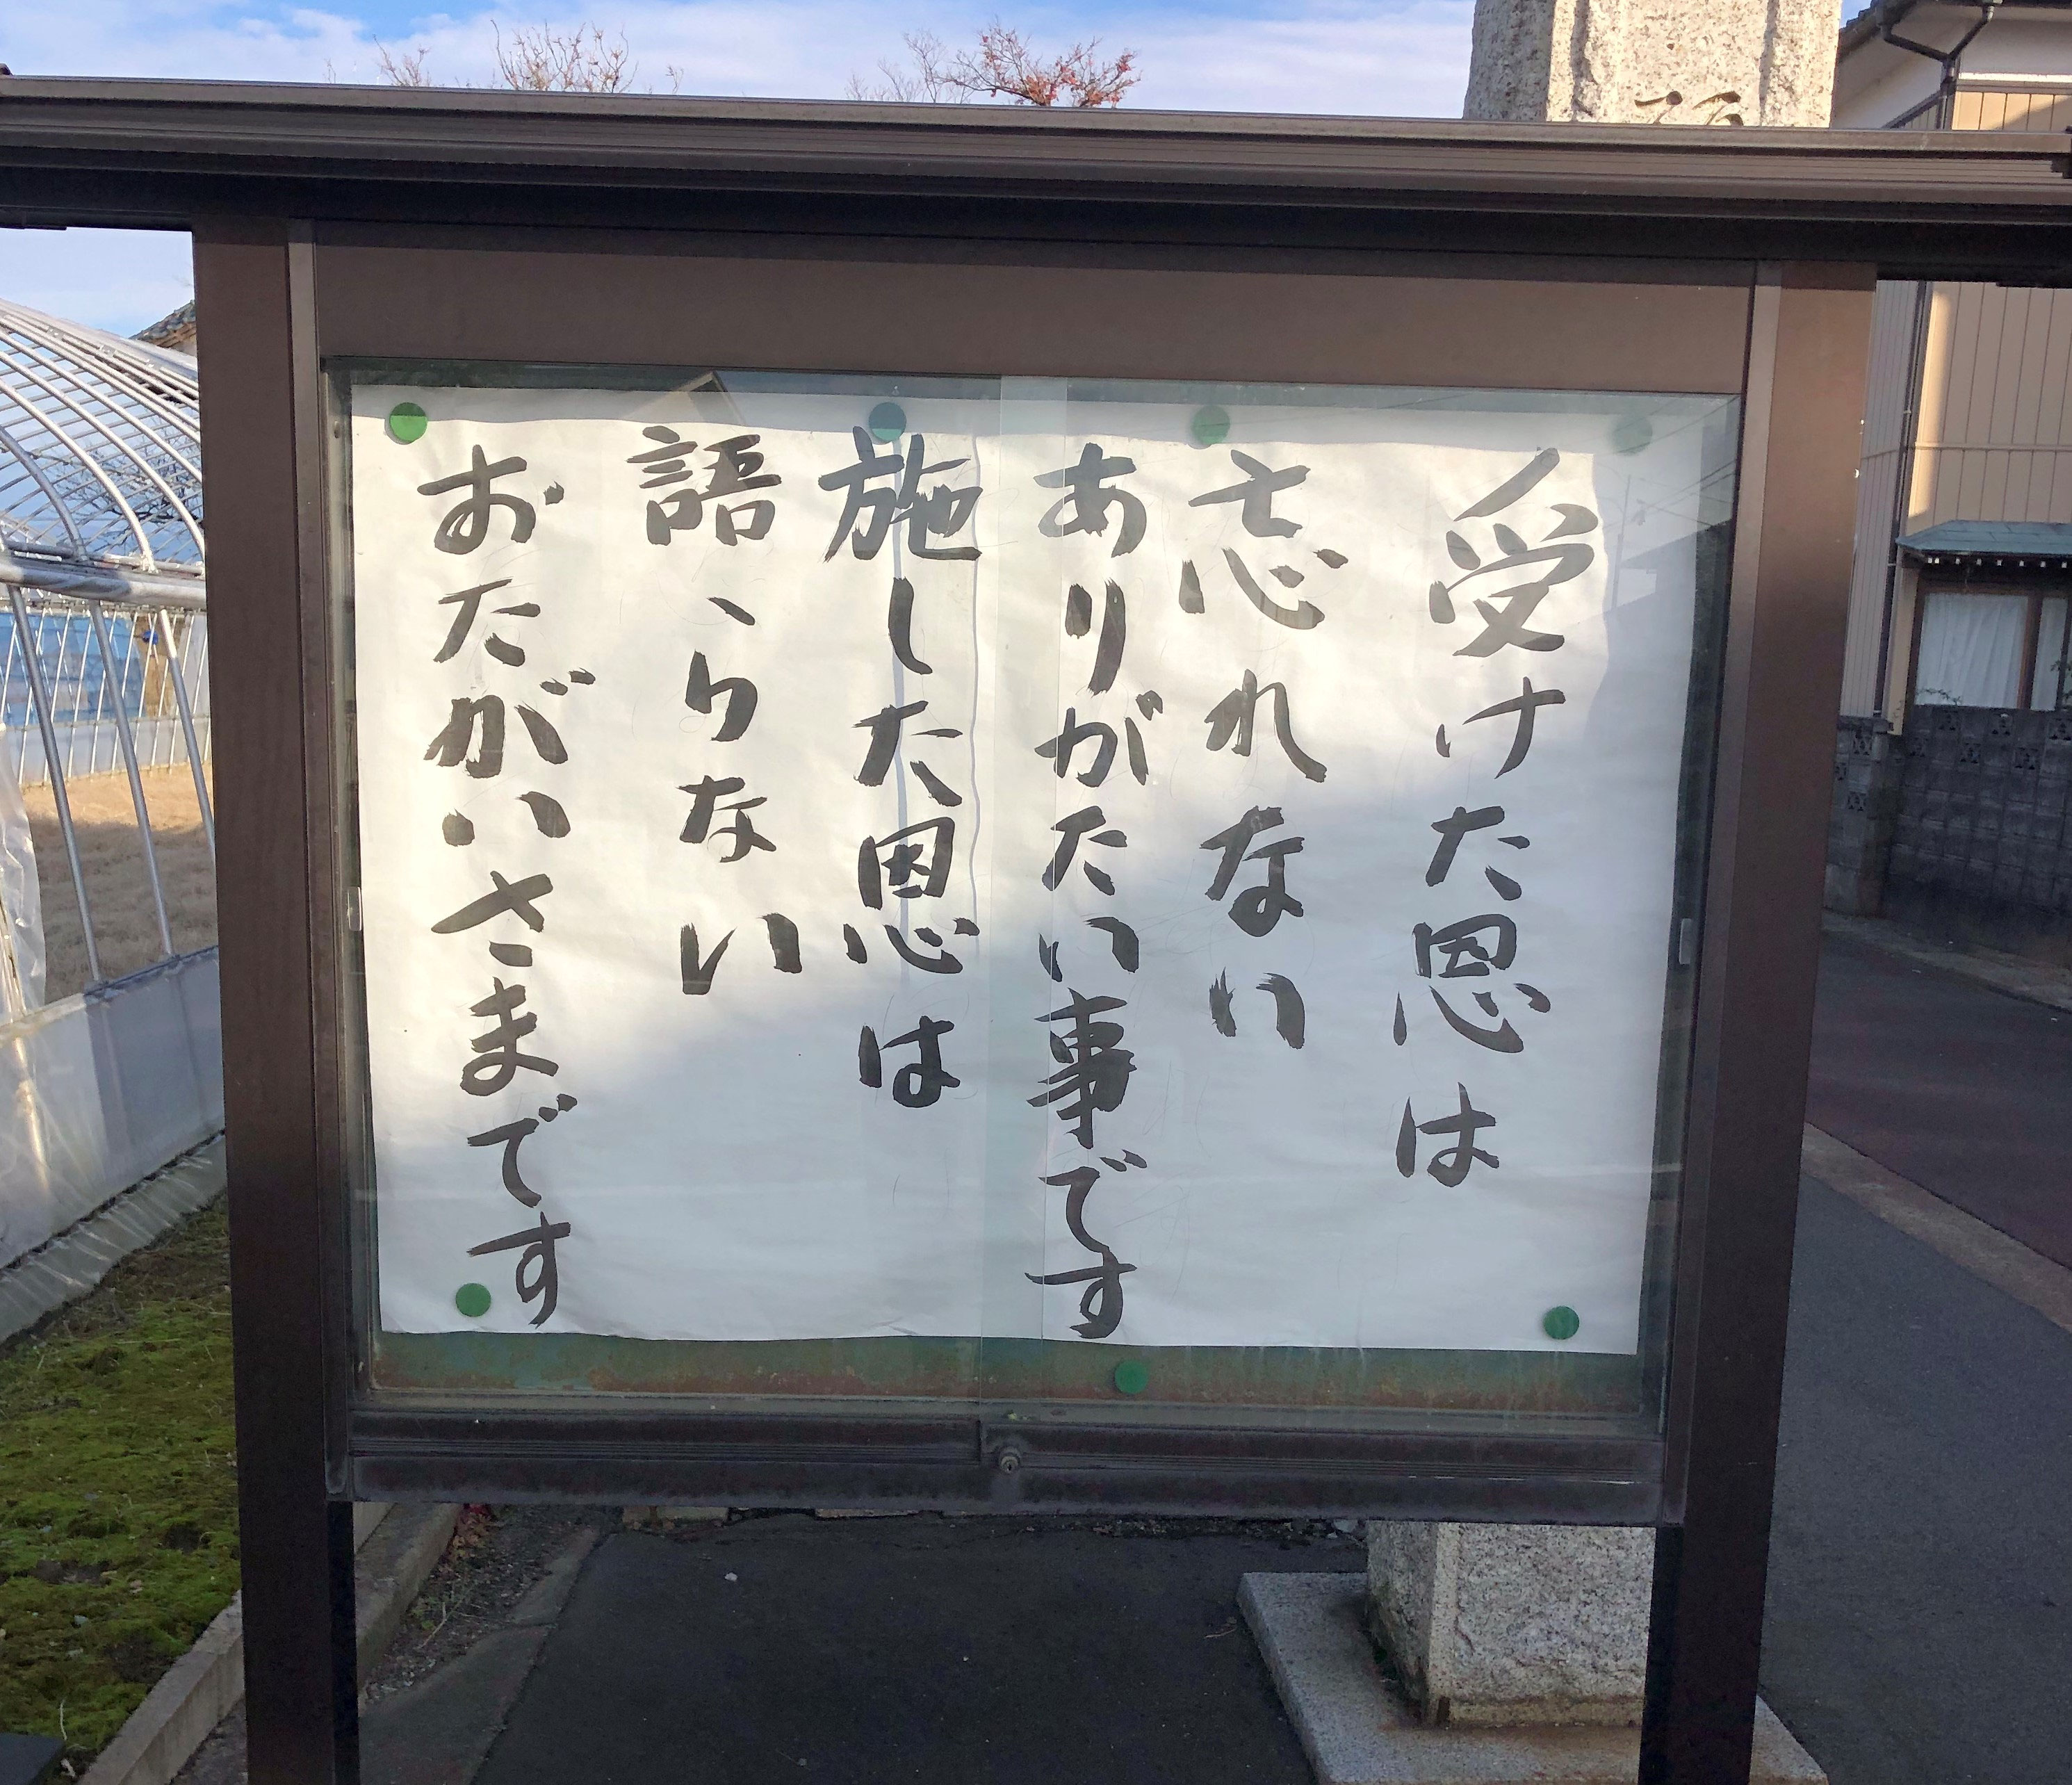 受けた恩は
忘れない
ありがたい事です
施した恩は
語らない
おたがいさまです